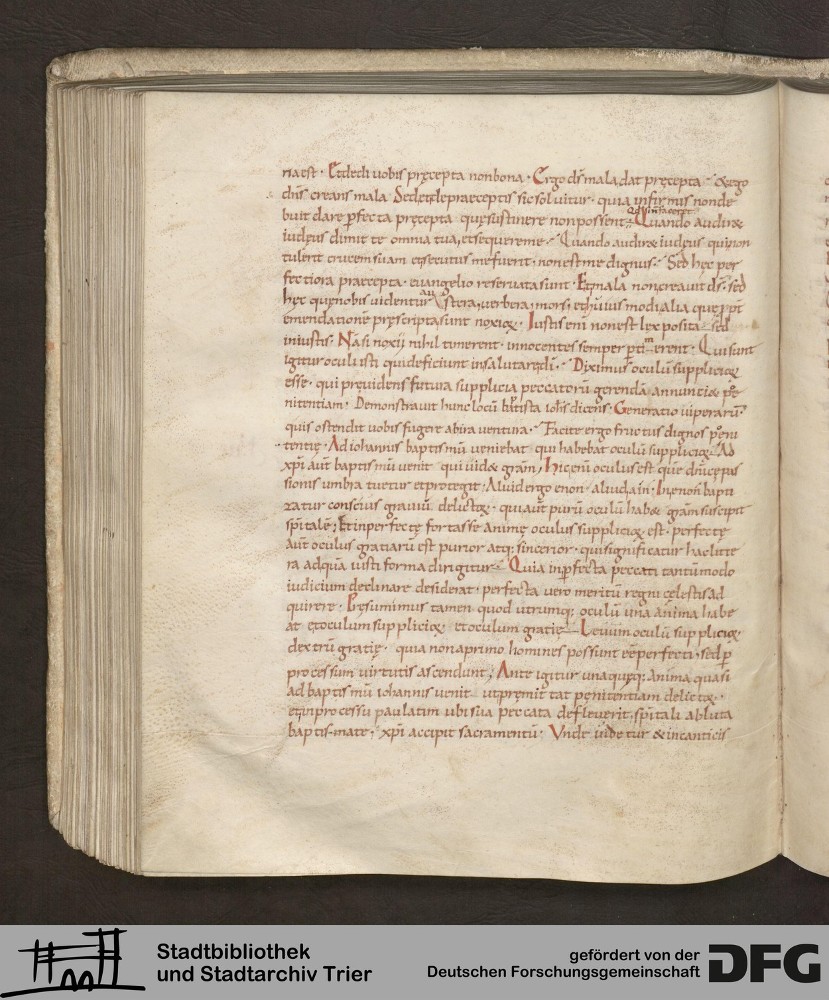 na est · Et dedi uobis pręcepta non bona · Ergo ds̄ mala dat pręcepta · & ego
dn̄s creans mala · Sed et de praeceptis sic soluitur · quia infirmis non de
buit dare ꝑfecta pręcepta quę sustinere non possent · Quando audir&
iudęus dimitte omnia tua, et sequere me · Quando audir& iudęus qui non
tulerit crucem suam et secutus me fuerit · non est me dignus · Sed hęc per
fectiora praecepta · euangelio reseruata sunt · Et mala non creauit ds̄ · sed
hęc quę nobis uidentur austera, uerbera, mors, et huius modi alia quę ꝓpt
emendationē pręscripta sunt noxiox · Iustis enī non est lex posita sed
iniustis · Nā si noxii nihil timerent · innocentes semper ꝑtimerent · Qui sunt
igitur oculi isti qui deficiunt in salutarę dī · Diximus oculū supplicioꝝ
esse · qui pręuidens futura supplicia peccatorū gerendā annunti& pę
nitentiam · Demonstrauit hunc locū baptista ioh̄s dicens · Generatio uiperarū
quis ostendit uobis fugere ab ira uentura · Facite ergo fructus dignos pęni
tentię · Ad iohannis baptismū ueniebat qui habebat oculū supplicioꝝ Ad
xp̄i aut̄ baptismū uenit qui uid& grām, hic enī oculus est quē dn̄icę pas
sionis umbra tuetur et protegit · Aliud ergo enon · aliud ain · In enon bapti
zatur conscius grauiū delictoꝝ · qui aut̄ purū oculū hab& grām suscipit
sp̄italē; Et inperfectę fortasse animę oculus supplicioꝝ est · perfectę
aut̄ oculus gratiarū est purior atq; sincerior · qui significatur hac litte
ra ad quā iusti forma dirigitur · Quia inꝑfecta peccati tantūmodo
iudicium declinare desiderat · perfecta uero meritū regni cęlestis ad
quirere · Pręsumimus tamen quod utrumq; oculū una anima habe
at et oculum supplicioꝝ et oculum gratię · Leuum oculū supplicioꝝ
dextrū gratię · quia non a primo homines possunt eē perfecti · sed ꝑ
processum uirtutis ascendunt; Ante igitur unaquęq; anima quasi
ad baptismū iohannis uenit ut premittat pęnitentiam delictoꝝ ·
et in processu paulatim ubi sua peccata defleuerit, sp̄itali abluta
baptismate, xp̄i accipit sacramentū · Unde uidetur & in canticis
Stadtbibliothek
und Stadtarchiv Trier
gefördert von der
Deutschen Forschungsgemeinschaft
DFG